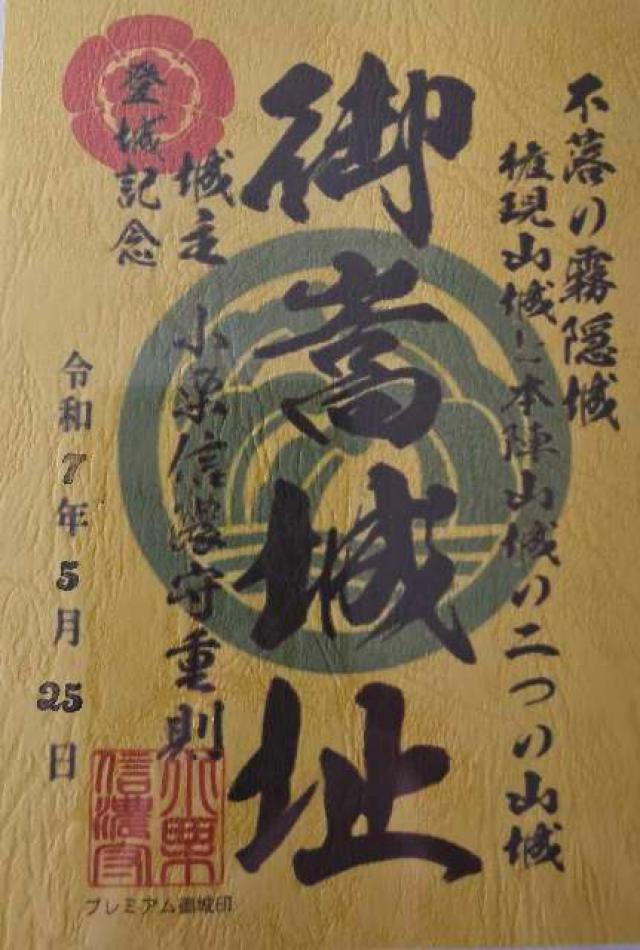 不落の霧隠城
権現山城と本陣山城の二つの山城
御嵩城址
城主 小栗信濃守重則
登城記念
令和7年5月25日
小栗
信濃守
プレミアム御城印